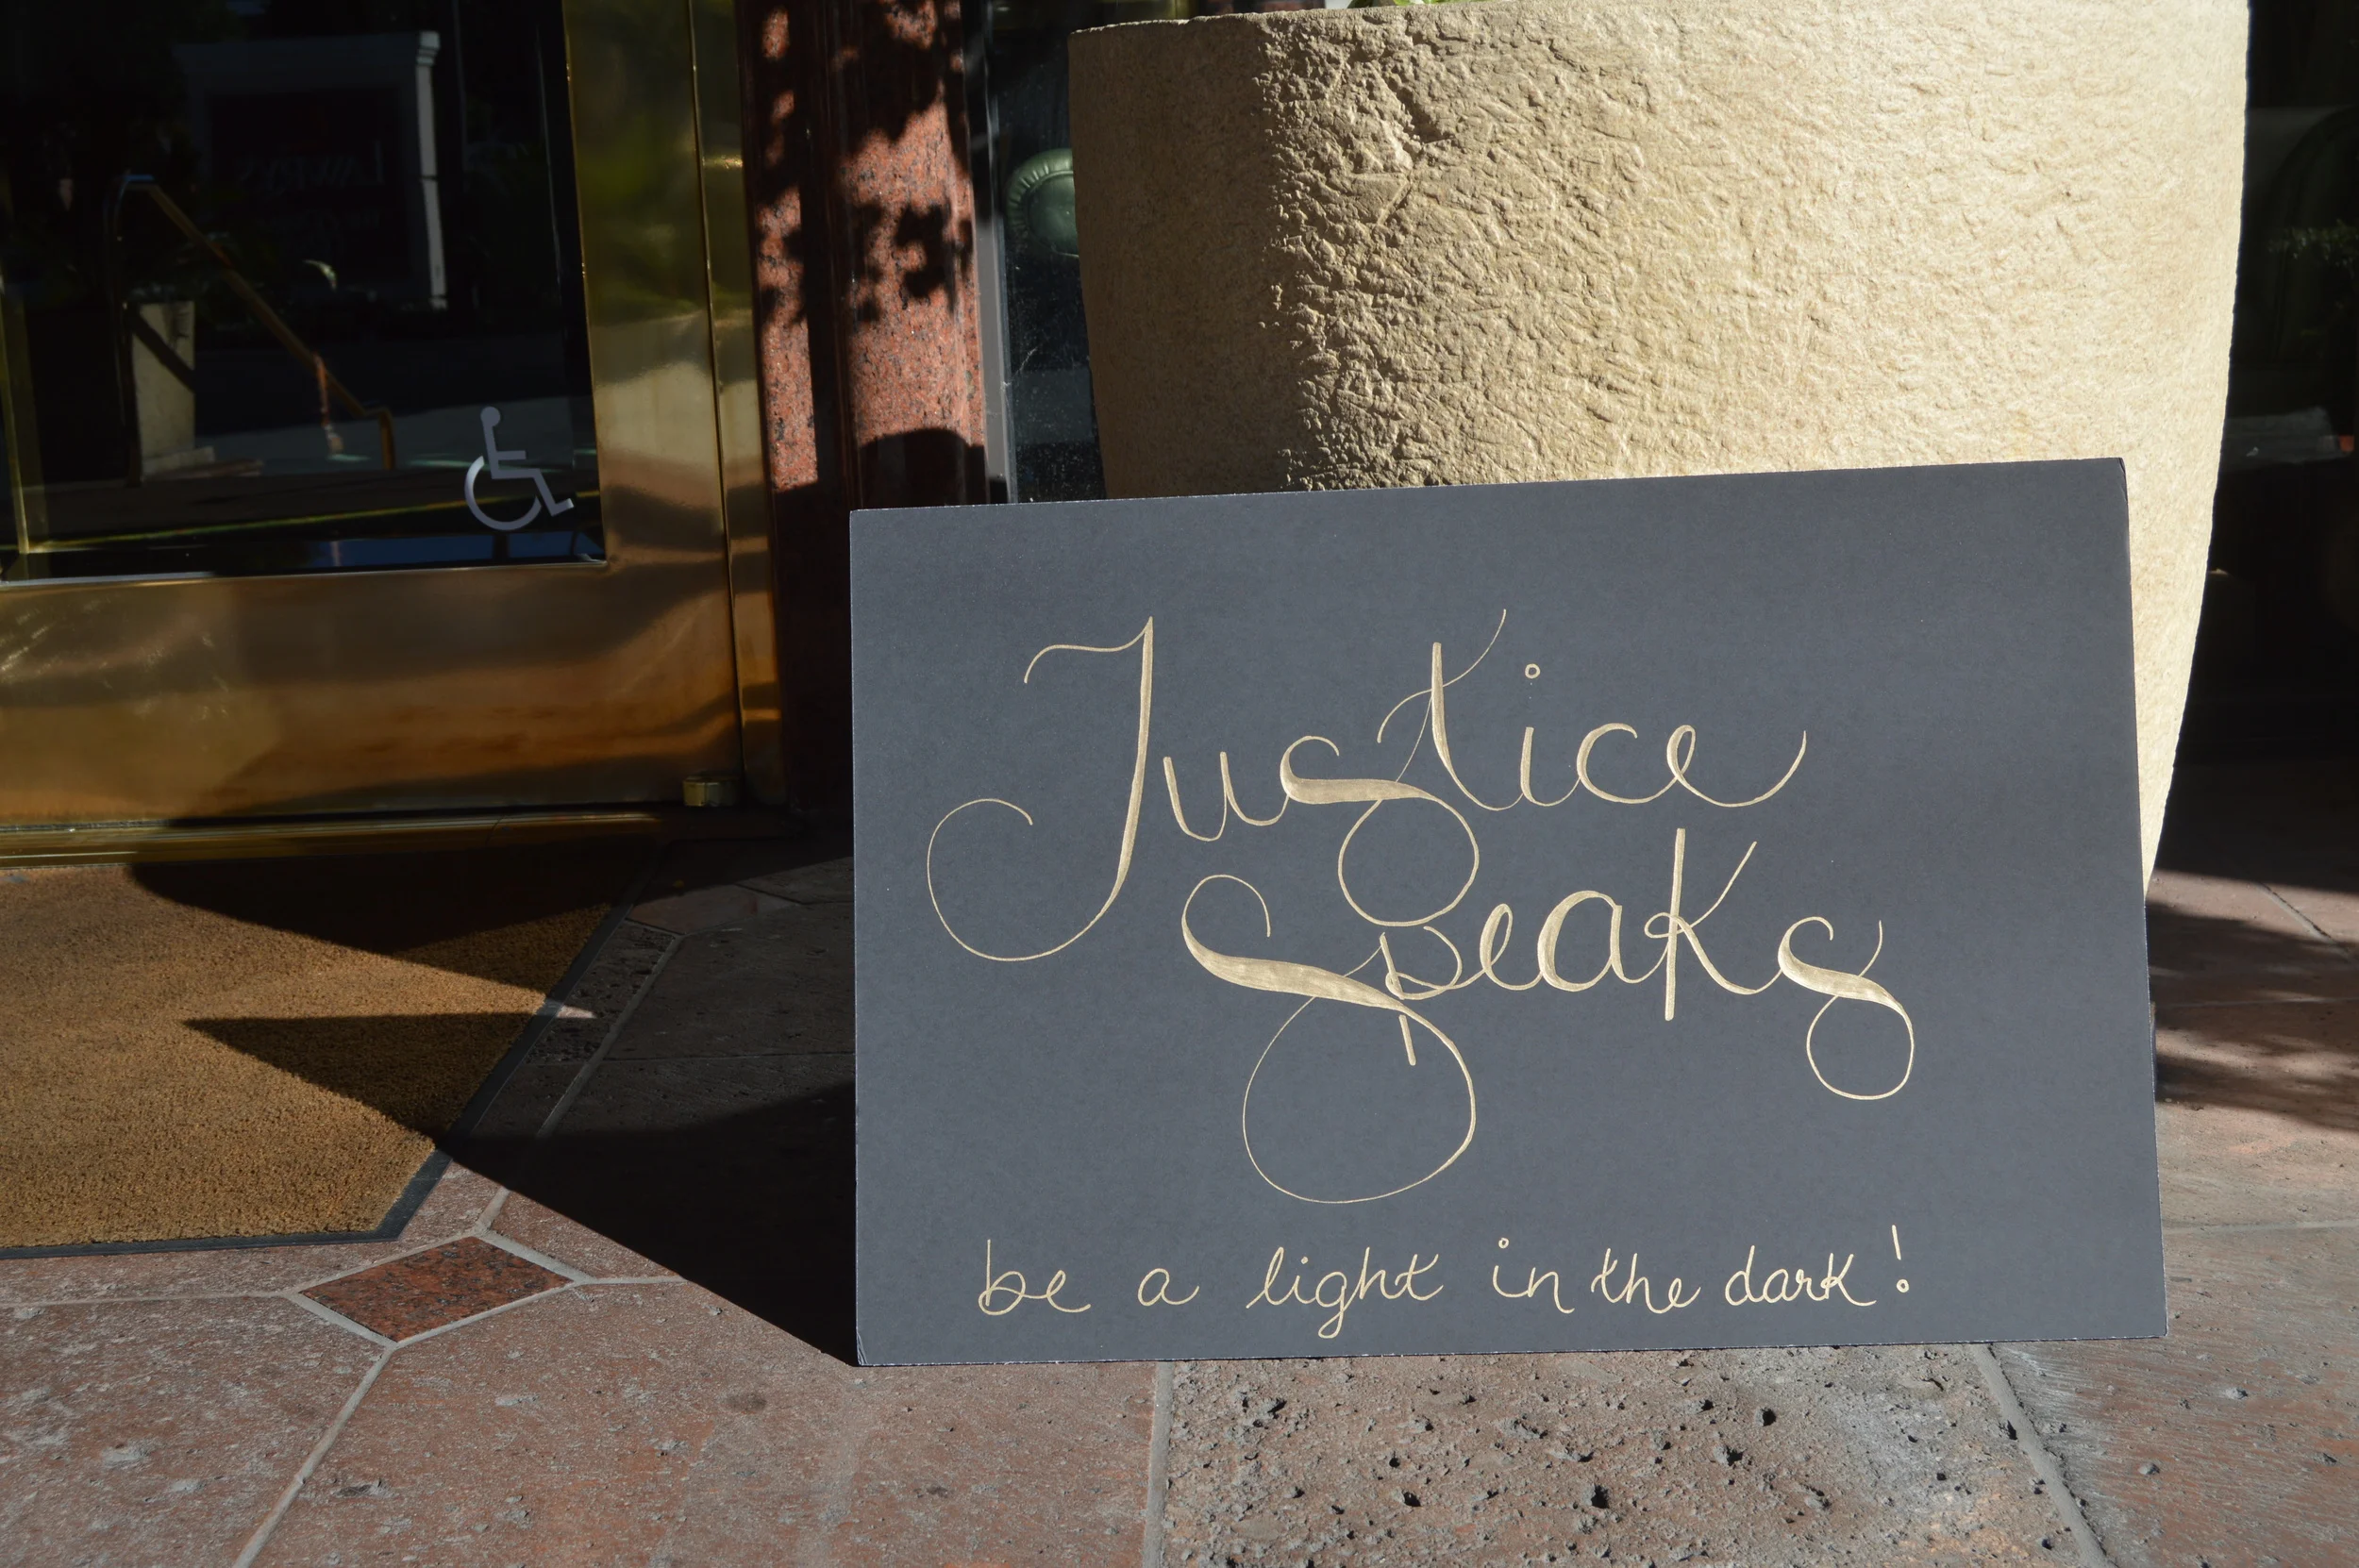 Justice
Speaks
be a light in the dark!